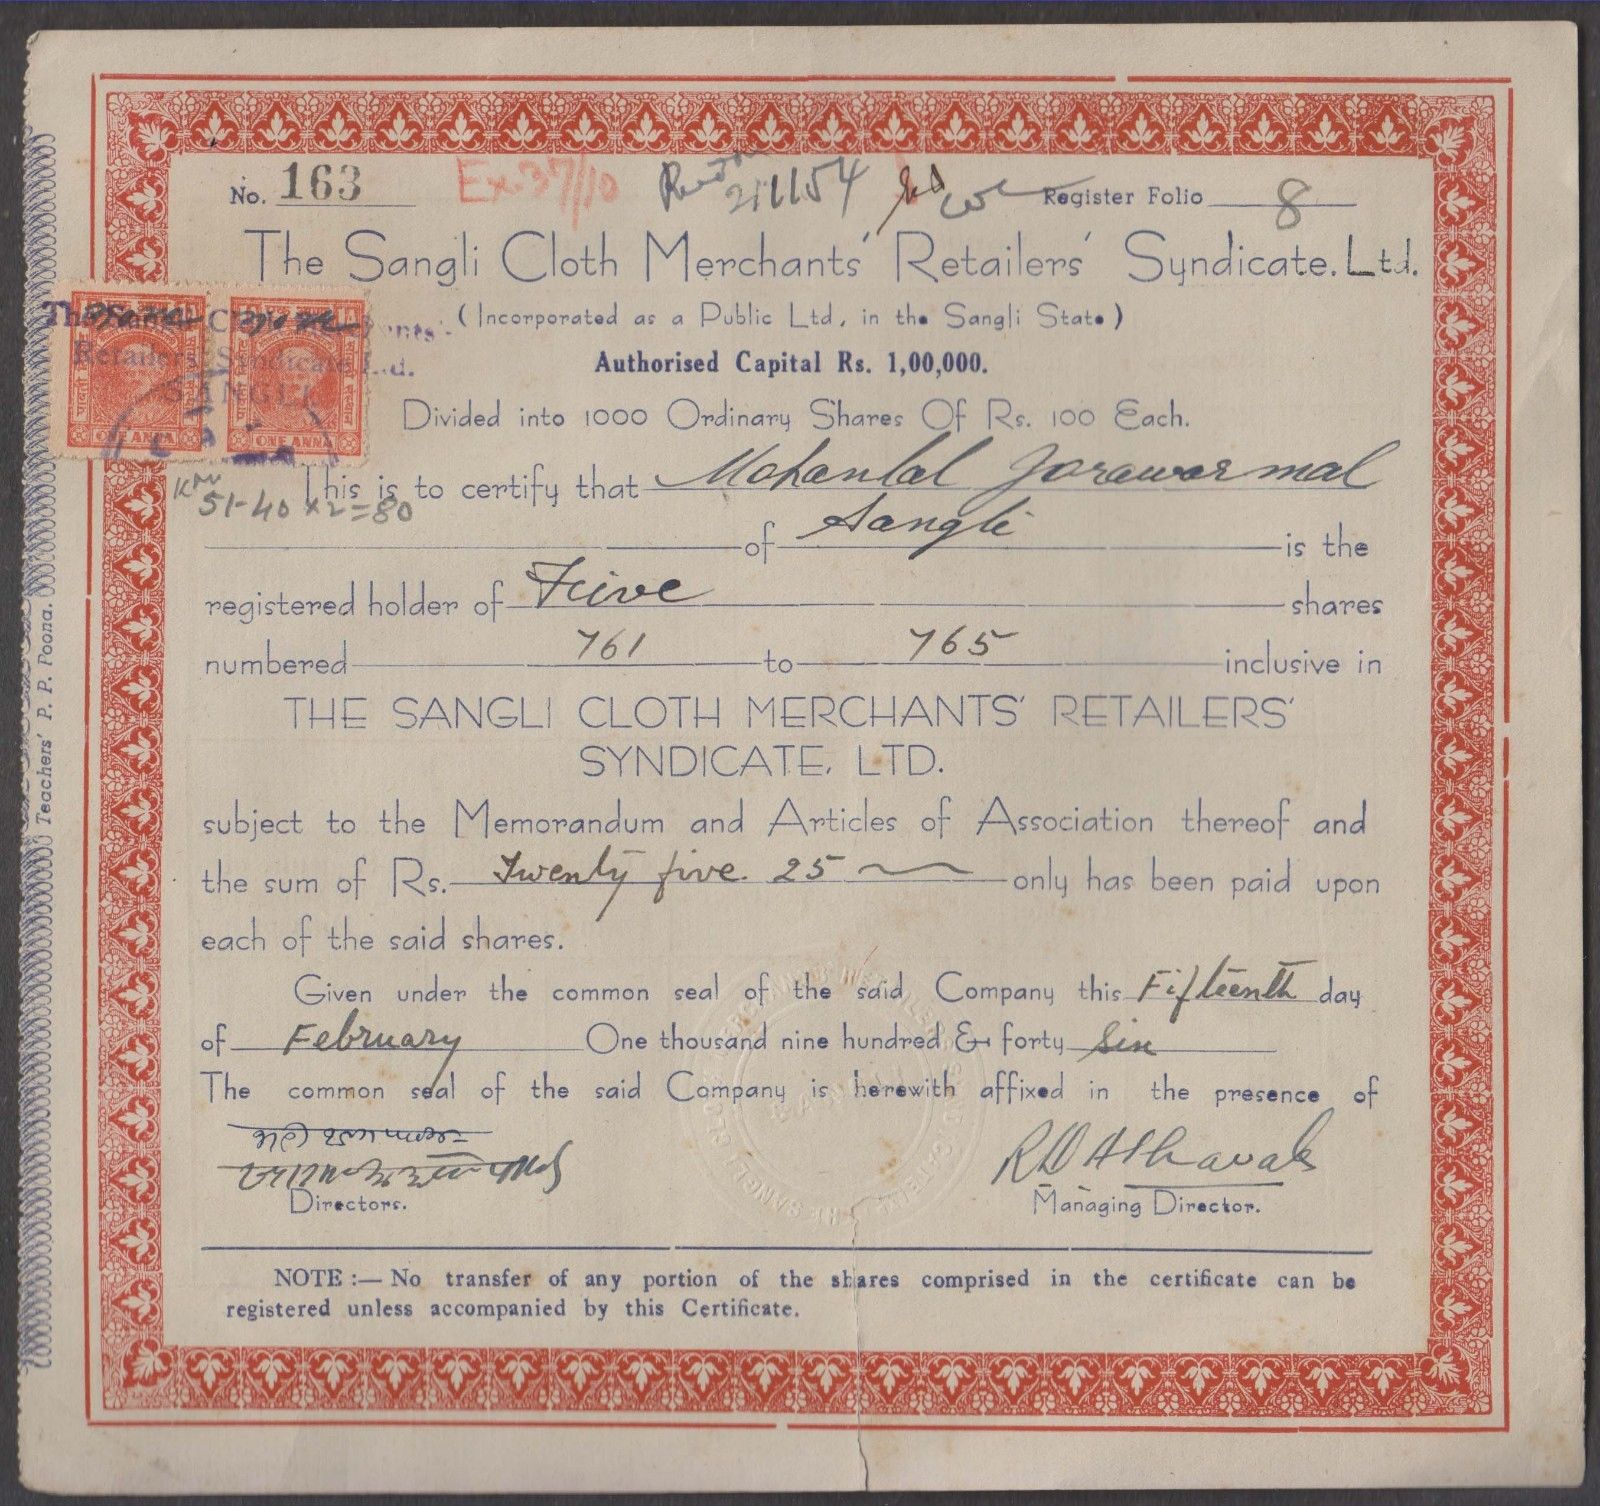 No. 163 Ex. 37/10 21154 Register Folio 8
The Sangli Cloth Merchants' Retailers' Syndicate. Ltd.
(Incorporated as a Public Ltd, in the Sangli State)
Retailers' Syndicate Ltd.
SANGLI
ONE ANNA ONE ANNA
Authorised Capital Rs. 1,00,000.
Divided into 1000 Ordinary Shares Of Rs. 100 Each.
51-40 x2=80
This is to certify that Mohanlal Jorawarmal
of Sangli is the
registered holder of Five shares
numbered 761 to 765 inclusive in
THE SANGLI CLOTH MERCHANTS' RETAILERS'
SYNDICATE, LTD.
subject to the Memorandum and Articles of Association thereof and
the sum of Rs. Twenty five. 25 only has been paid upon
each of the said shares.
Given under the common seal of the said Company this Fifteenth day
of February One thousand nine hundred & forty Six
The common seal of the said Company is herewith affixed in the presence of
R D Athavale
Directors. Managing Director.
NOTE :— No transfer of any portion of the shares comprised in the certificate can be
registered unless accompanied by this Certificate.
Teachers' P. P. Poona.